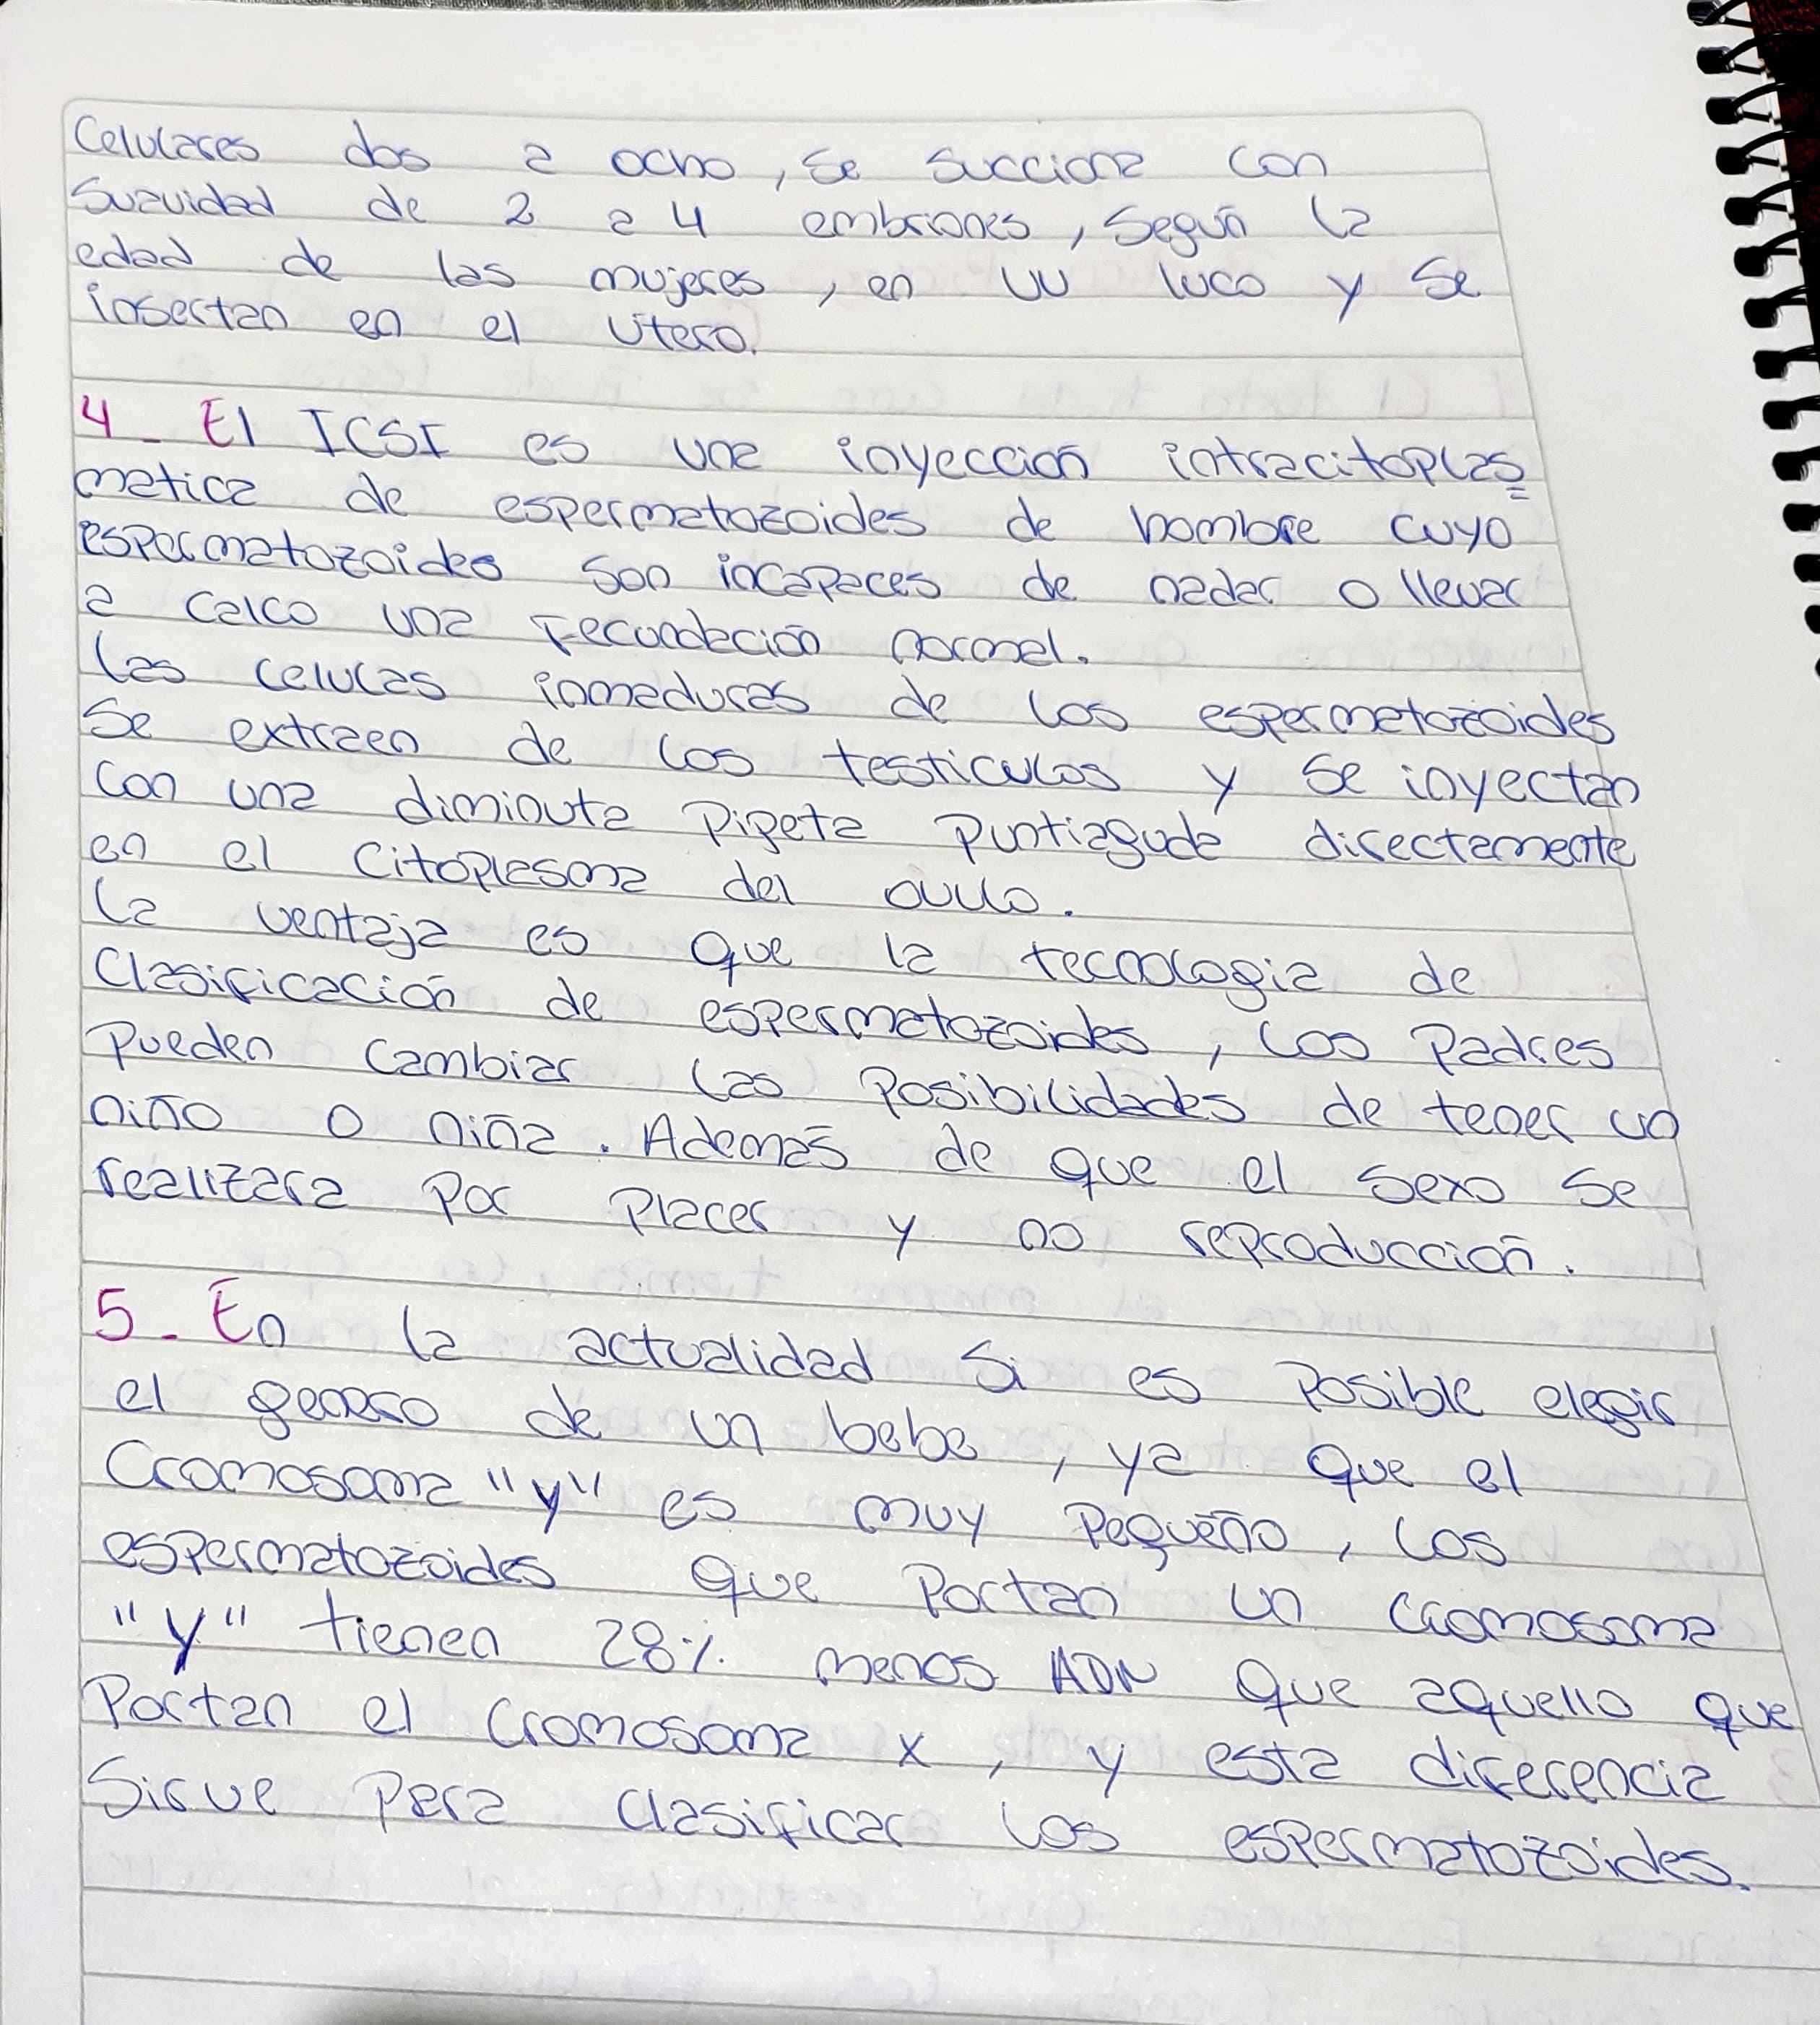 Celulares dos a ocho, se succiona con
suavidad de 2 a 4 embriones, según la
edad de las mujeres, en uu luco y se
insertan en el utero.
4_ El ICSI es una inyección intracitoplas=
matica de espermatozoides de hombre cuyo
espermatozoides son incapaces de nadar o llevar
a calco una fecundación normal.
Las celulas inmaduras de los espermatozoides
se extraen de los testiculos y se inyectan
con una diminuta pipeta puntiaguda directamente
en el citoplasma del ovulo.
La ventaja es que la tecnologia de
clasificación de espermatozoides, los padres
pueden cambiar las posibilidades de tener un
niño o niña. Además de que el sexo se
realizara por placer y no reproducción.
5_ En la actualidad si es posible elegir
el genero de un bebe, ya que el
cromosoma "y" es muy pequeño, los
espermatozoides que portan un cromosoma
"y" tienen 28% menos ADN que aquello que
portan el cromosoma x, y esta diferencia
sirve para clasificar los espermatozoides.